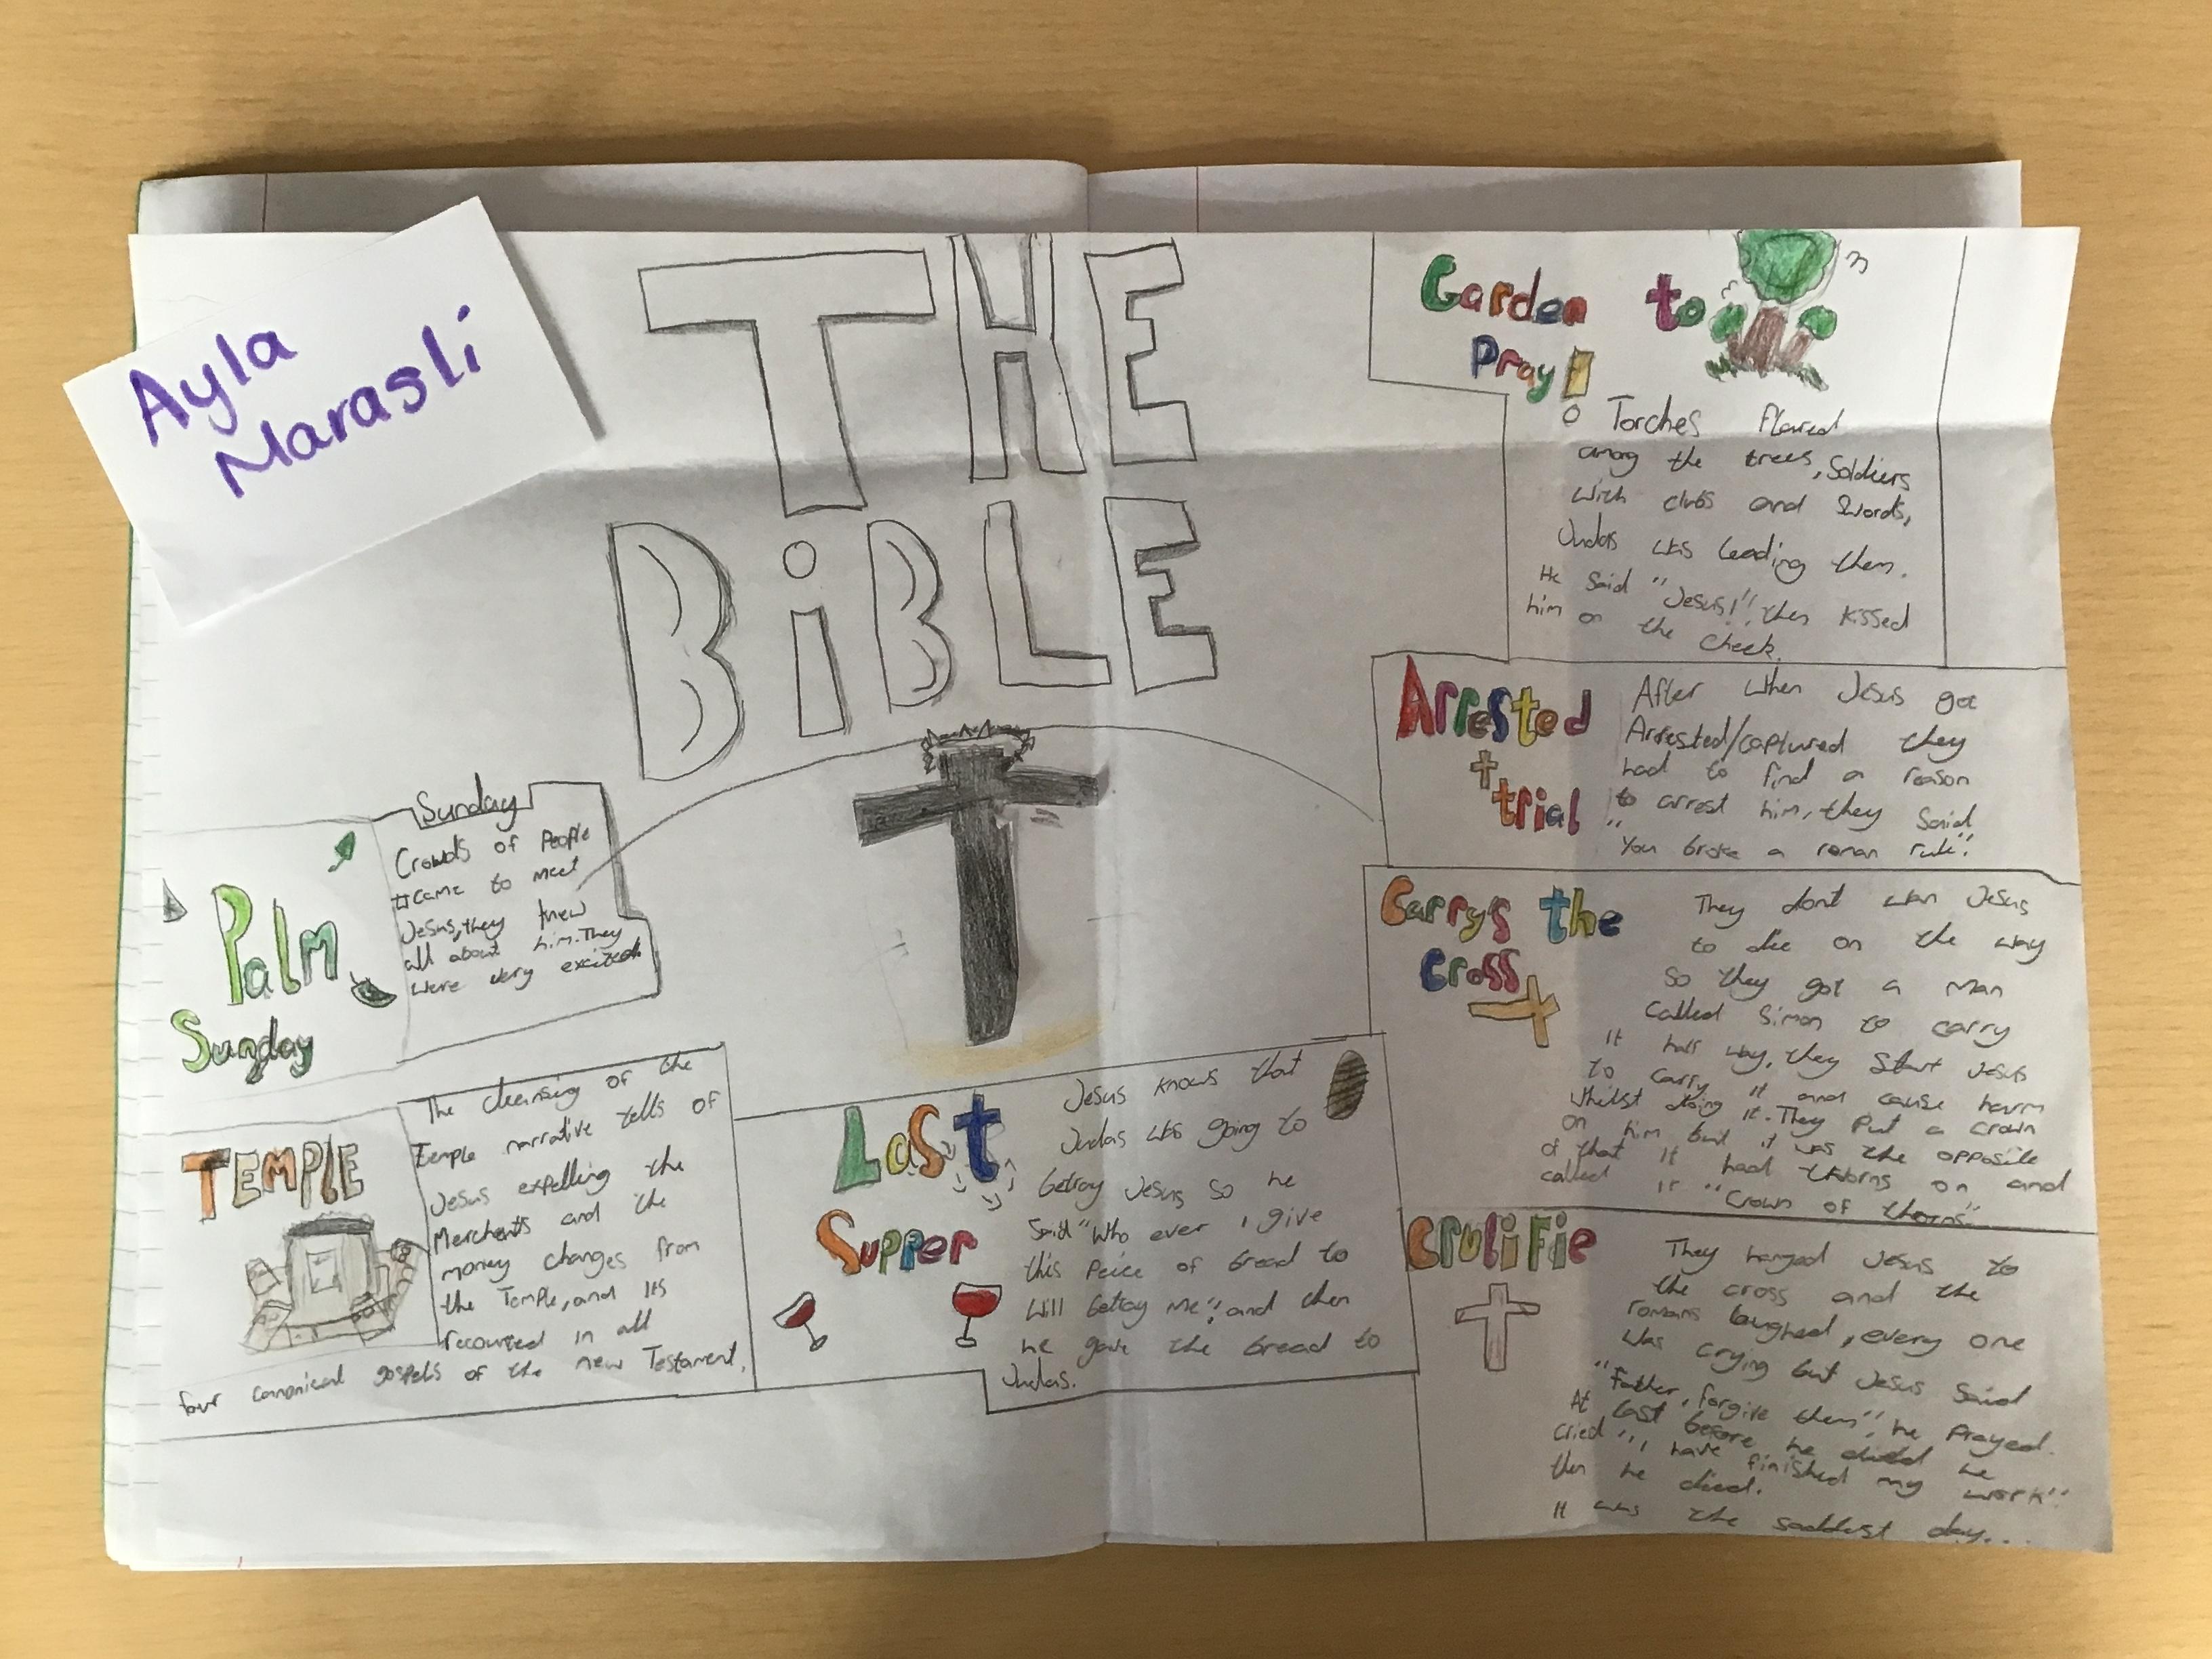 Ayla
Marasli
THE
BiBLE
Palm
Sunday
Sunday
Crowds of People
came to meet
Jesus, they knew
all about him. They
were very excited
TEMPLE
The cleansing of the
temple narrative tells of
Jesus expelling the
Merchants and the
money changes from
the Temple, and its
recounted in all
four canonical gospels of the new Testament.
Last
Supper
Jesus knows that
Judas was going to
betray Jesus so he
said "Who ever i give
this peice of bread to
will betray me", and then
he gave the bread to
Judas.
Garden to
pray!
Torches flared
among the trees, Soldiers
with clubs and swords,
Judas was leading them.
He said "Jesus!" then kissed
him on the cheek.
Arrested
trial
After when Jesus got
Arrested/captured they
had to find a reason
to arrest him, they said
"You broke a roman rule".
Carrys the
Cross
They dont wan Jesus
to die on the way
so they got a man
called Simon to carry
it half way, they start Jesus
to carry it and cause harm
whilst doing it. They put a crown
on him but it was the opposite
of that it had thorns on and
called it "Crown of thorns".
CruliFie
They hanged Jesus to
the cross and the
romans laughed, every one
was crying but Jesus said
"Father, forgive them", he prayed.
At last before he died he
cried "i have finished my work".
then he died.
It was the saddest day...